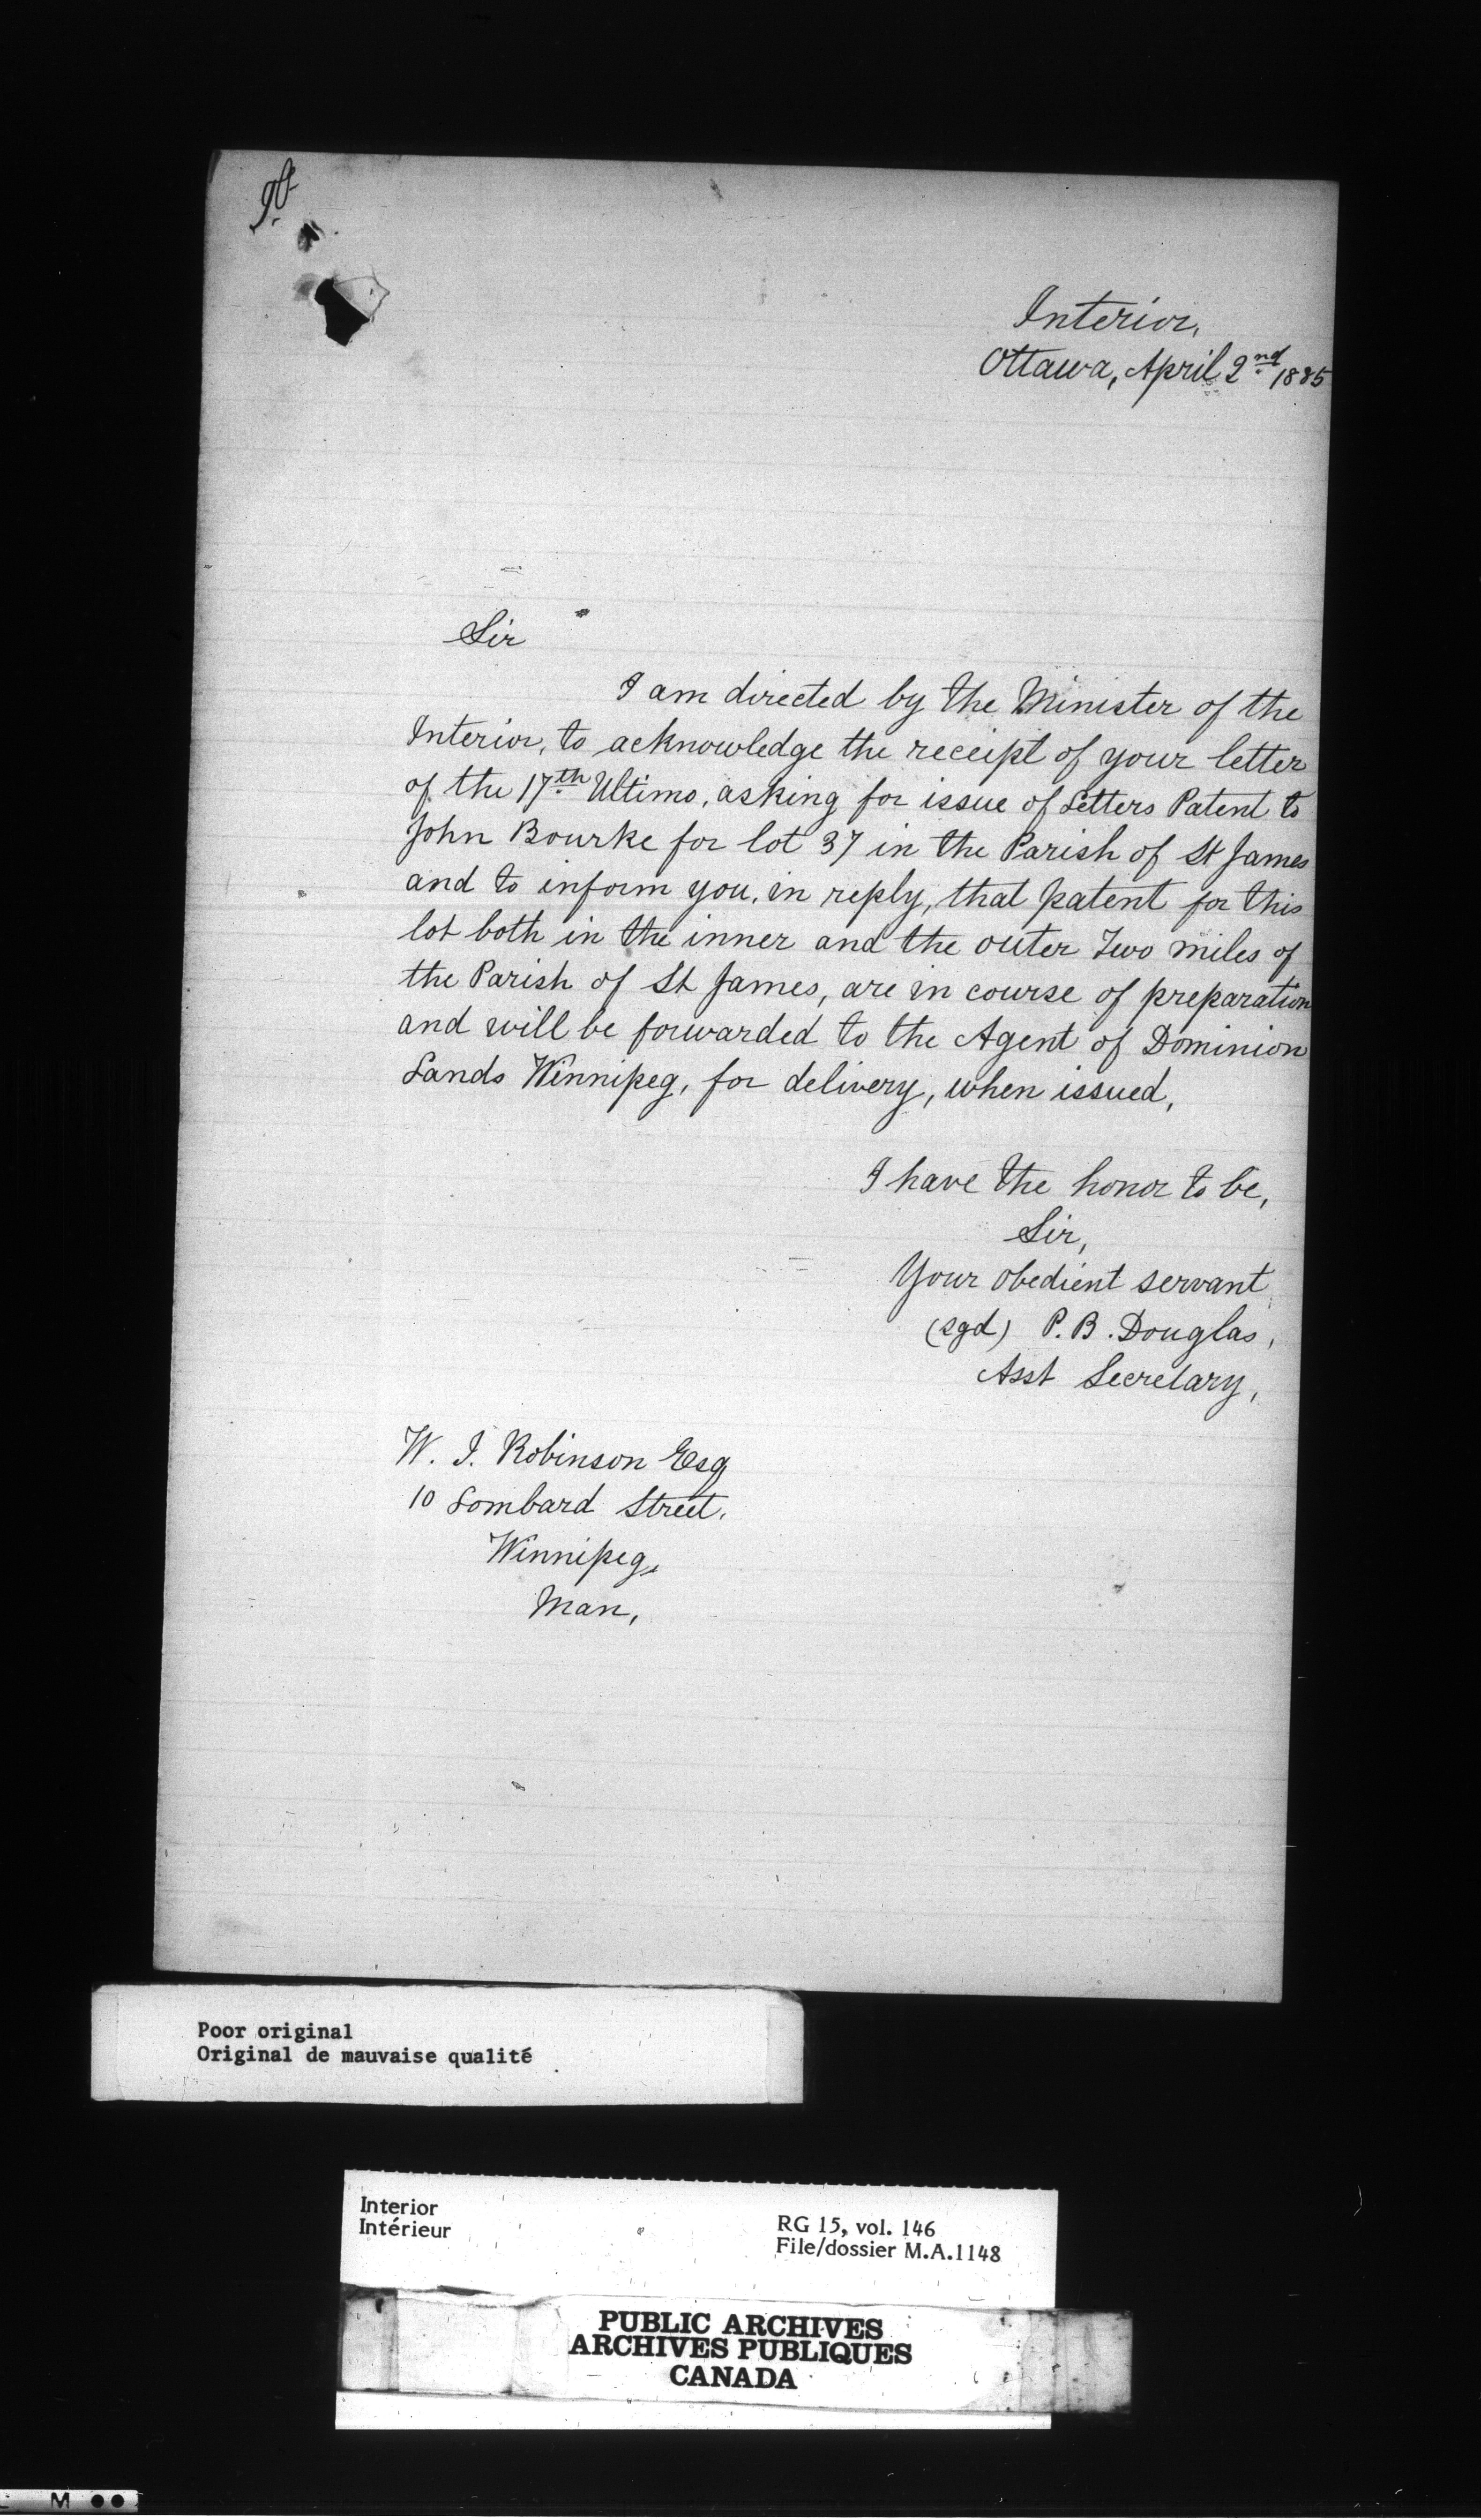 Interior,
Ottawa, April 2nd 1885
Sir
I am directed by the Minister of the
Interior, to acknowledge the receipt of your letter
of the 17th Ultimo, asking for issue of Letters Patent to
John Bourke for lot 37 in the Parish of St James
and to inform you, in reply, that patent for this
lot both in the inner and the outer Two miles of
the Parish of St James, are in course of preparation
and will be forwarded to the Agent of Dominion
Lands Winnipeg, for delivery, when issued,
I have the honor to be,
Sir,
Your obedient servant
(sgd) P. B. Douglas,
Asst Secretary,
W. J. Robinson Esq
10 Lombard Street.
Winnipeg,
Man,
Poor original
Original de mauvaise qualité
Interior
Intérieur
RG 15, vol. 146
File/dossier M.A.1148
PUBLIC ARCHIVES
ARCHIVES PUBLIQUES
CANADA
M